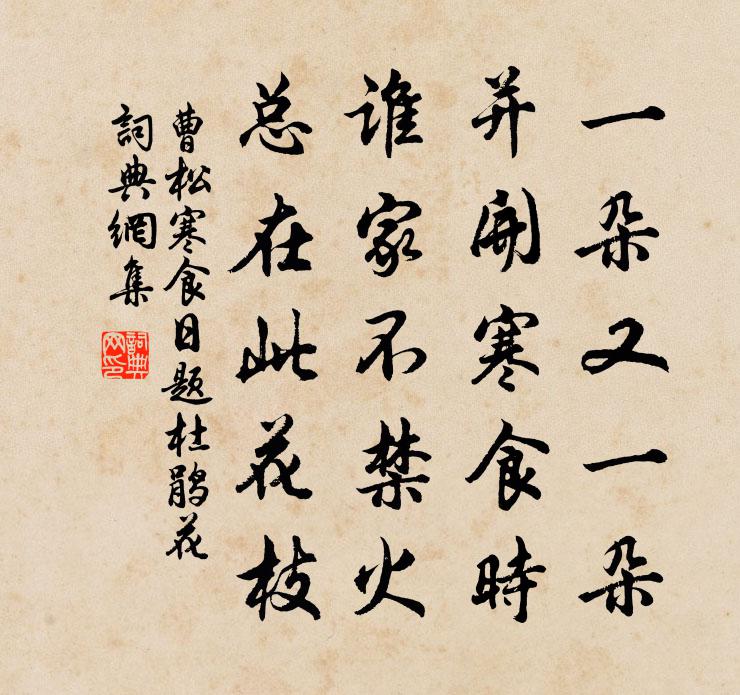 一朵又一朵
并開寒食時
谁家不禁火
总在此花枝
曹松寒食日題杜鹃花
詞典網集
詞典
网印